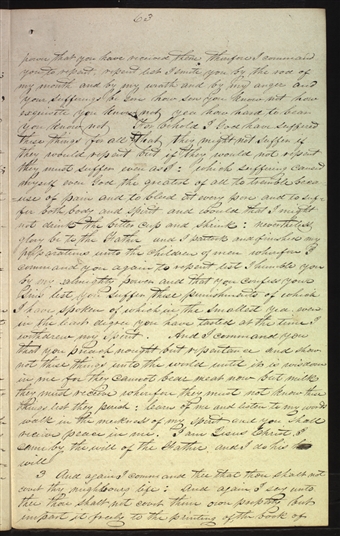 63
power that you have received them therefore I command
you to repent, repent lest I smite you by the rod of
my mouth and by my wrath and by my anger and
your sufferings be sore how sore you know not how
exquisite you know not yea how hard to bear
you know not For behold I God have suffered
these things for all that they might not suffer if
they would repent but if they would not repent
they must suffer even as I: which suffering caused
myself even God the greatest of all to tremble beca
use of pain and to bleed at every pore and to suf-
fer both body and spirit and would that I might
not drink the bitter cup and shrink: nevertheless
glory be to the Father and I partook and finished my
preparations unto the children of men wherefore I
command you again to repent lest I humble you
by my almighty power and that you confess your
sins lest you suffer these punishments of which
I have spoken of which in the smallest yea even
in the least degree you have tasted at the time I
withdrew my Spirit. And I command you
that you preach nought but repentance and show
not these things unto the world until it is wisdom
in me for they cannot bear meat now but milk
they must receive wherefore they must not know these
things lest they perish: learn of me and listen to my words
walk in the meekness of my Spirit and you shall
receive peace in me. I am Jesus Christ I
came by the will of the Father and I do his
will
3 And again I command thee that thou shalt not
covet thy neighbors wife: And again I say unto
thee thou shalt not covet thine own property but
impart it freely to the printing of the book of